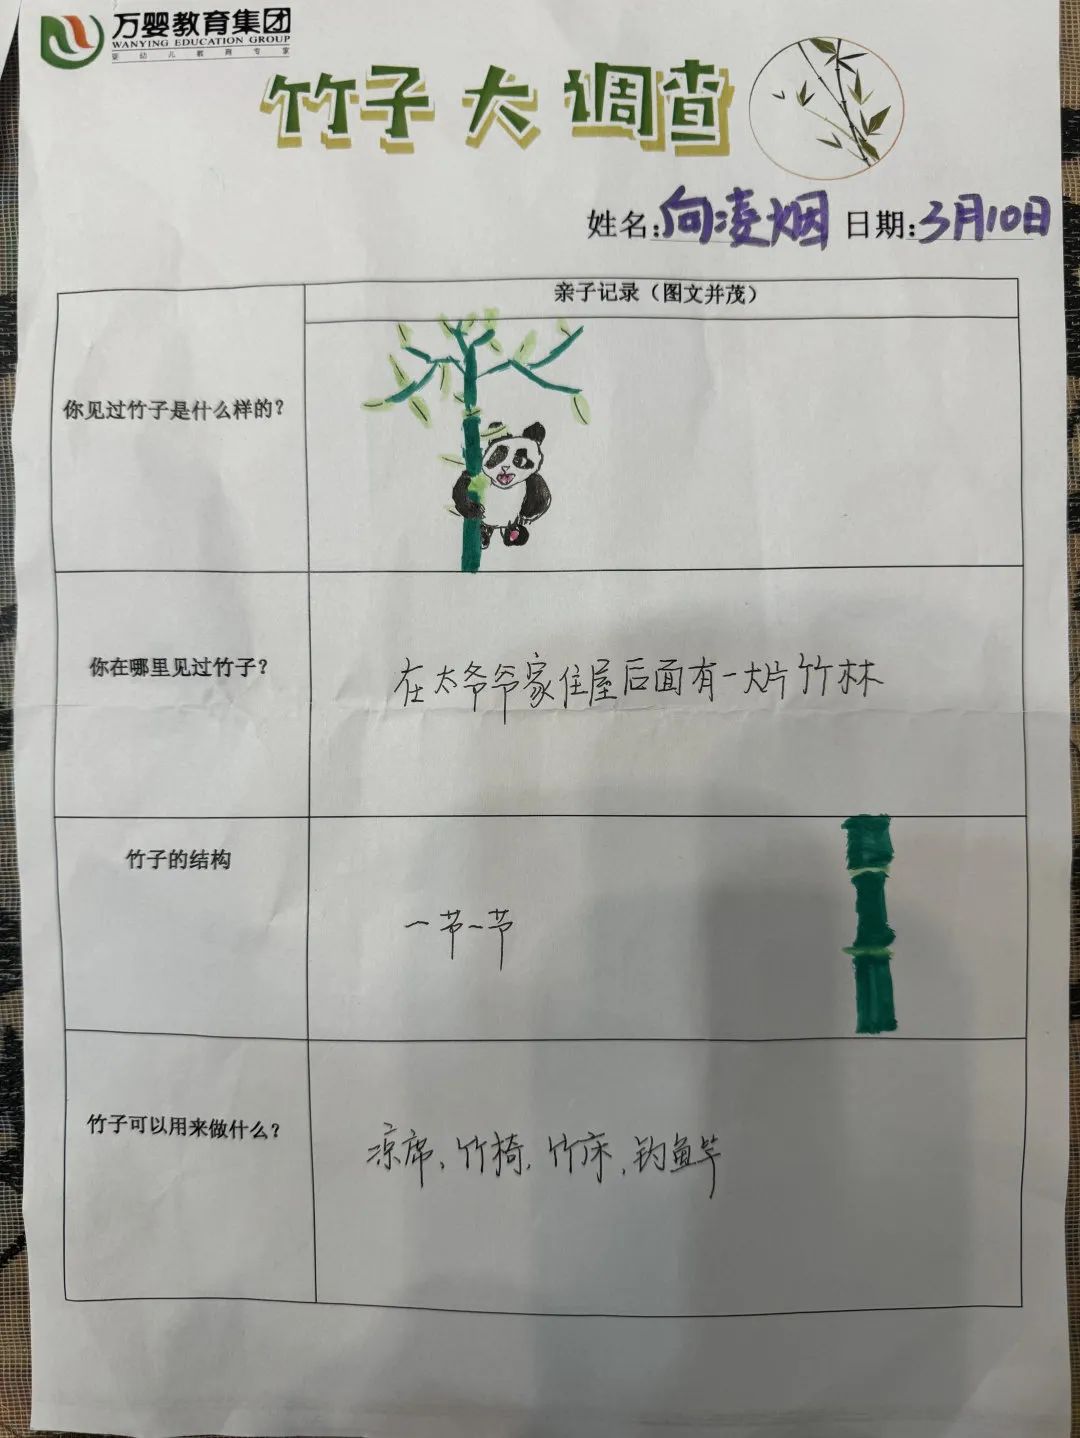 万婴教育集团
WANYING EDUCATION GROUP
婴幼儿教育专家
竹子大调查
姓名:向凌烟 日期:3月10日
亲子记录（图文并茂）
你见过竹子是什么样的?
你在哪里见过竹子?
在太爷爷家住屋后面有一大片竹林
竹子的结构
一节一节
竹子可以用来做什么?
凉席、竹椅、竹床、钓鱼竿